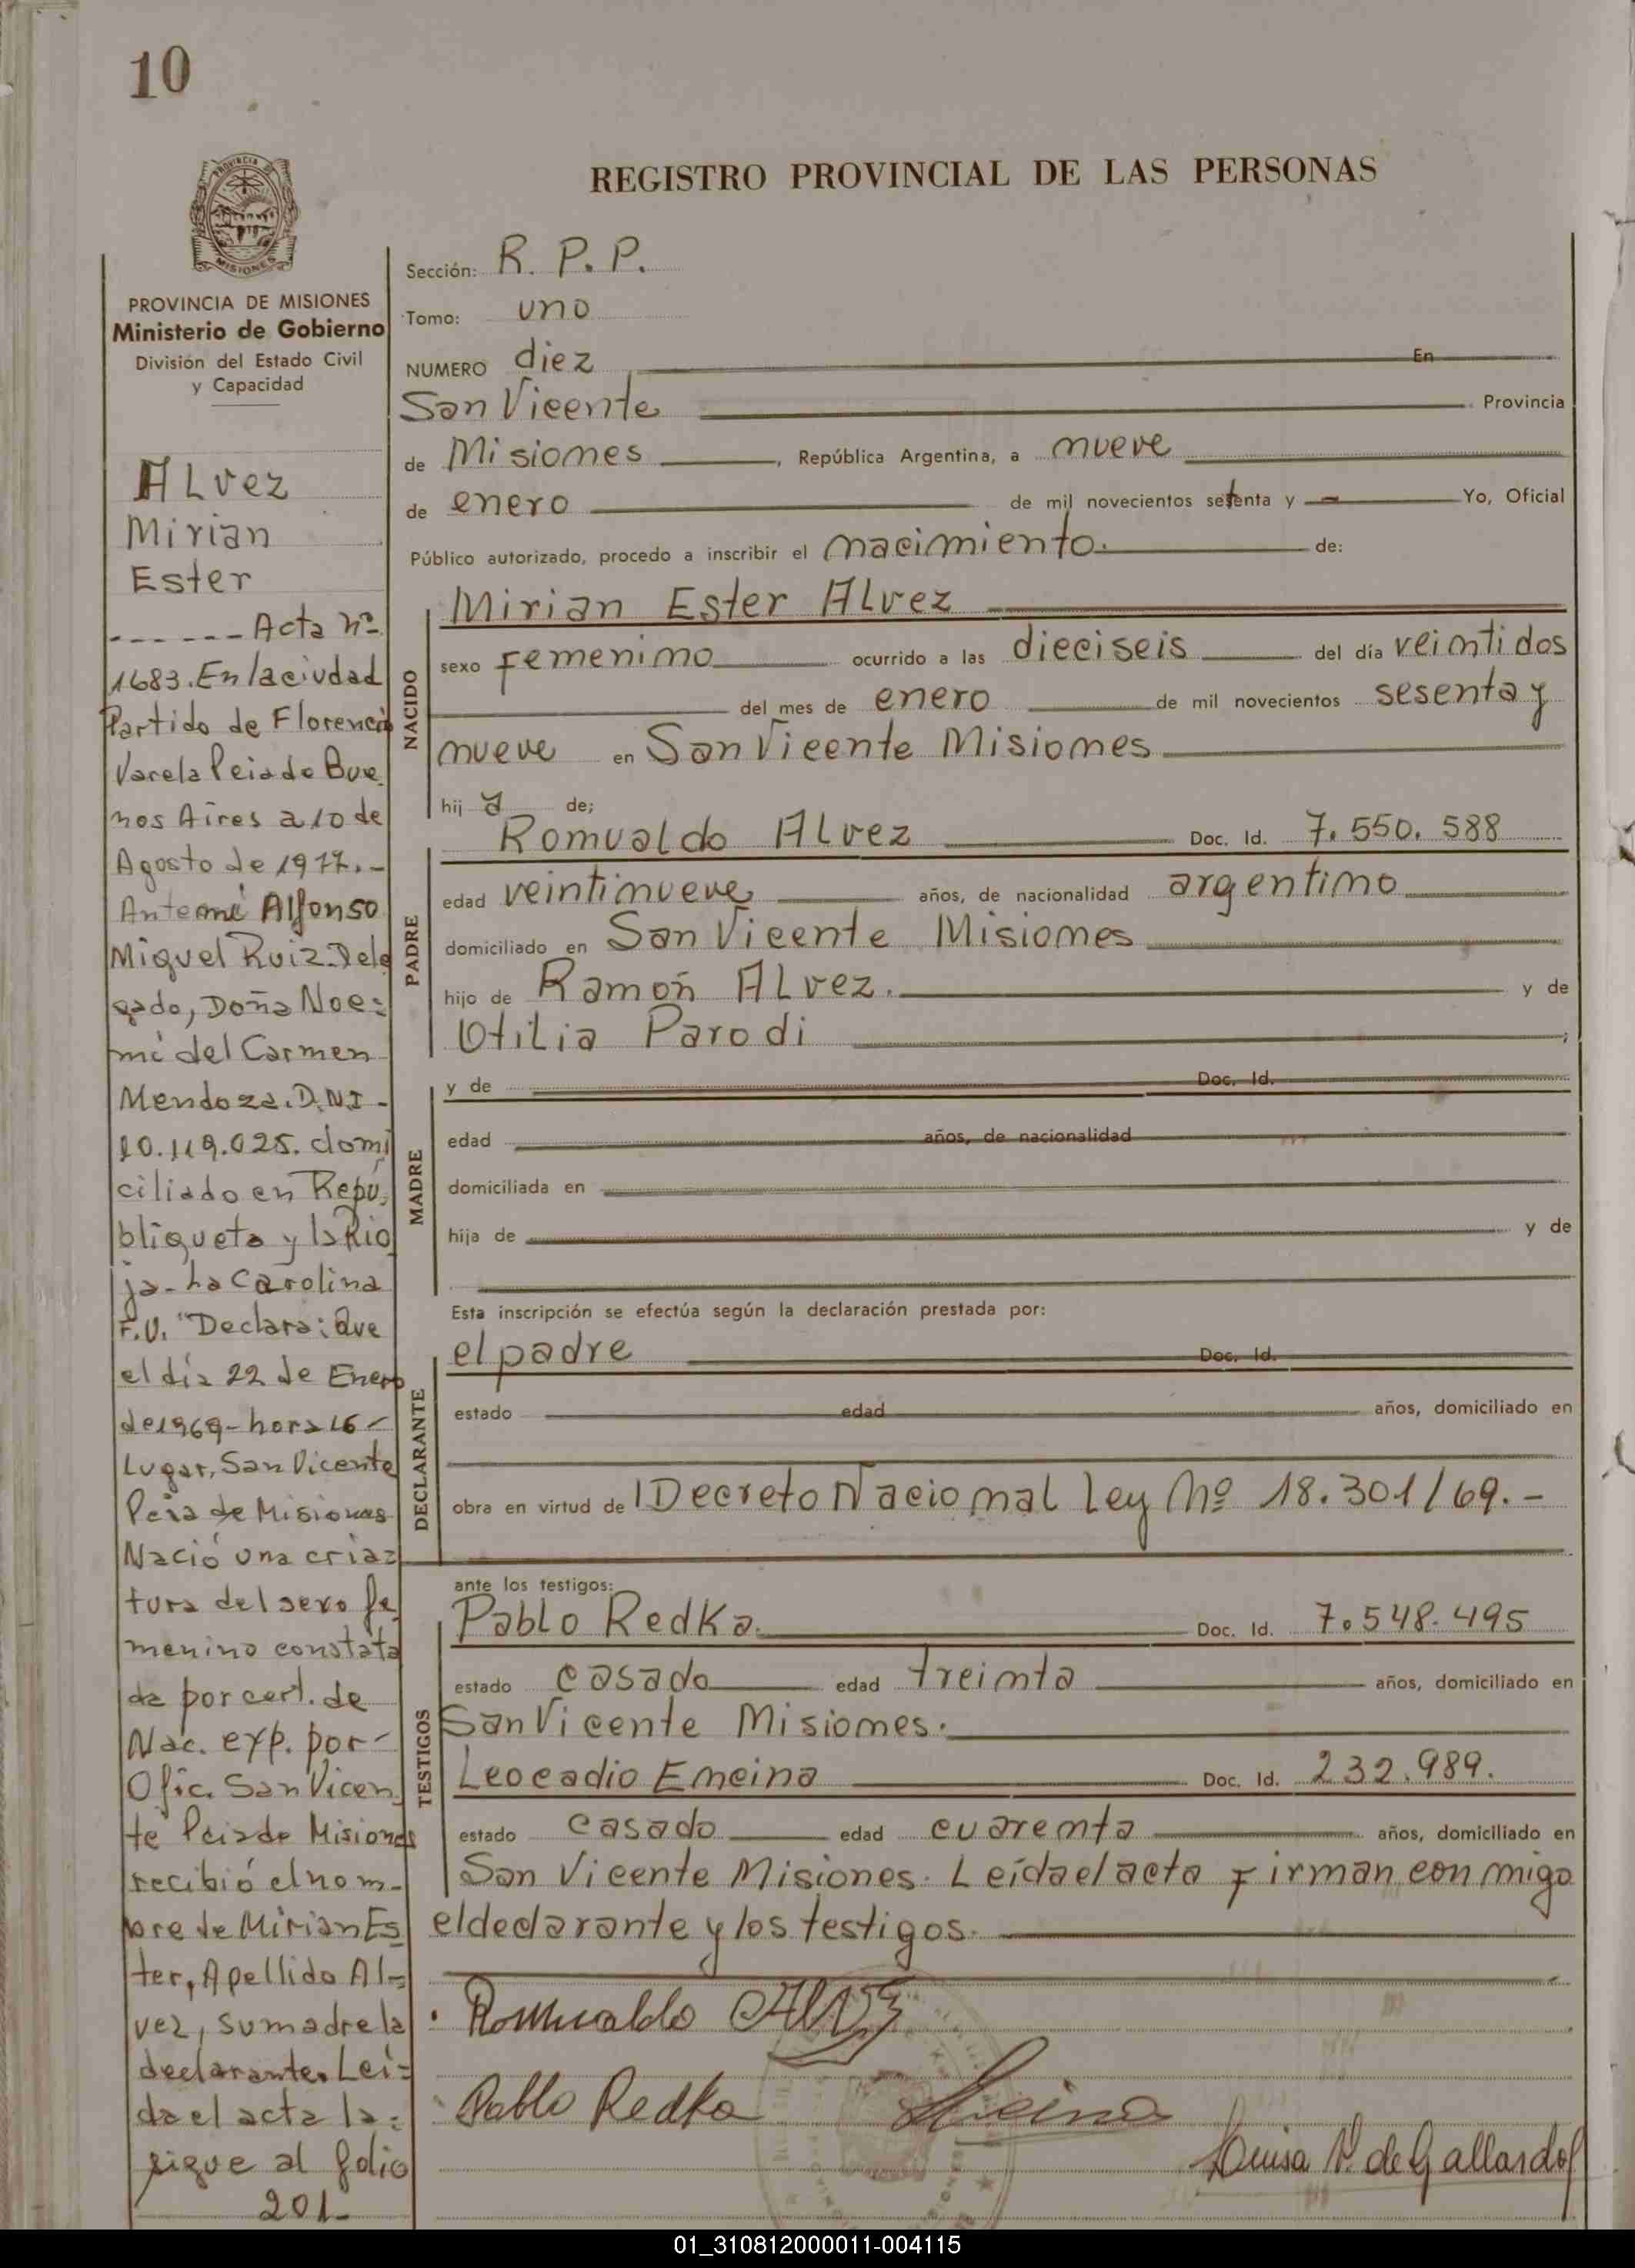 10
PROVINCIA
MISIONES
REGISTRO PROVINCIAL DE LAS PERSONAS
PROVINCIA DE MISIONES
Ministerio de Gobierno
División del Estado Civil
y Capacidad
Sección: R. P. P.
Tomo: uno
NUMERO diez En
San Vicente Provincia
de Misiones, República Argentina, a nueve
de enero de mil novecientos setenta y - Yo, Oficial
Público autorizado, procedo a inscribir el nacimiento. de:
NACIDO
Mirian Ester Alvez
sexo Femenino ocurrido a las dieciseis del día veintidos
del mes de enero de mil novecientos sesenta y
nueve en San Vicente Misiones
hij a de;
PADRE
Romualdo Alvez Doc. Id. 7.550.588
edad veintinueve años, de nacionalidad argentino
domiciliado en San Vicente Misiones
hijo de Ramón Alvez. y de
Otilia Parodi ;
MADRE
y de Doc. Id.
edad años, de nacionalidad
domiciliada en
hija de y de
Esta inscripción se efectúa según la declaración prestada por:
DECLARANTE
el padre Doc. Id.
estado edad años, domiciliado en
obra en virtud de Decreto Nacional Ley Nº 18.301/69.-
ante los testigos:
TESTIGOS
Pablo Redka. Doc. Id. 7.548.495
estado casado edad treinta años, domiciliado en
San Vicente Misiones.
Leocadio Encina Doc. Id. 232.989.
estado casado edad cuarenta años, domiciliado en
San Vicente Misiones. Leída el acta Firman conmigo
el declarante y los testigos.
Romualdo Alvez
Pablo Redka
Encina
Luisa V. de Gallardo
Alvez
Mirian
Ester
------ Acta nº
1683. En la ciudad
Partido de Florencio
Varela Pcia de Bue
nos Aires a 10 de
Agosto de 1977.-
Ante mí Alfonso
Miguel Ruiz-Dele
gado, Doña Noe=
mí del Carmen
Mendoza. D.N.I-
10.119.025. domi
ciliado en Repú
bliqueta y la Rio
ja-La Carolina
F.V. "Declara: Que
el día 22 de Enero
de 1969-hora 16-
Lugar, San Vicente
Pcia de Misiones
Nació una cria=
tura del sexo fe
menino constata
da por cert. de
Nac. exp. por-
Ofic. San Vicen
te Pcia de Misiones
recibió el nom-
bre de Mirian Es
ter, Apellido Al=
vez, su madre la
declarante. Leí=
da el acta la=
sigue al folio
201-
01_310812000011-004115